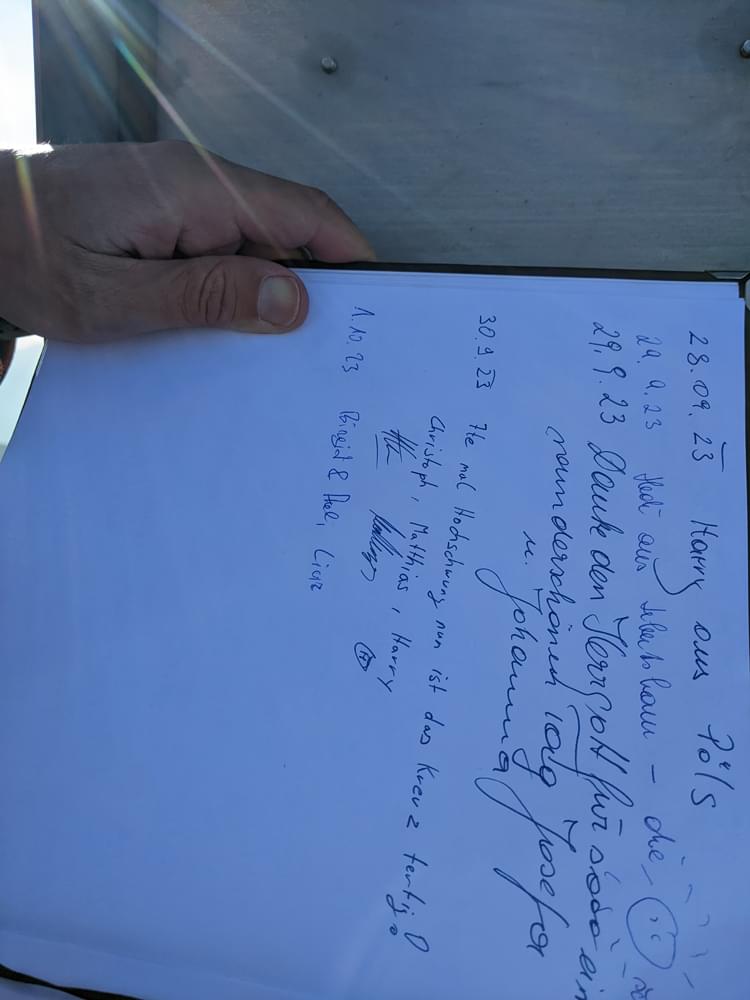 28.09.23 Harry aus Pöls
29.9.23 aus - die
29.9.23 Danke den Herrgott für so ein
wunderschönen Tag Josefa
u. Johanna
30.9.23 7te mal Hochschwung nun ist das Kreuz fertig!
Christoph, Matthias, Harry
1.10.23 Birgit &